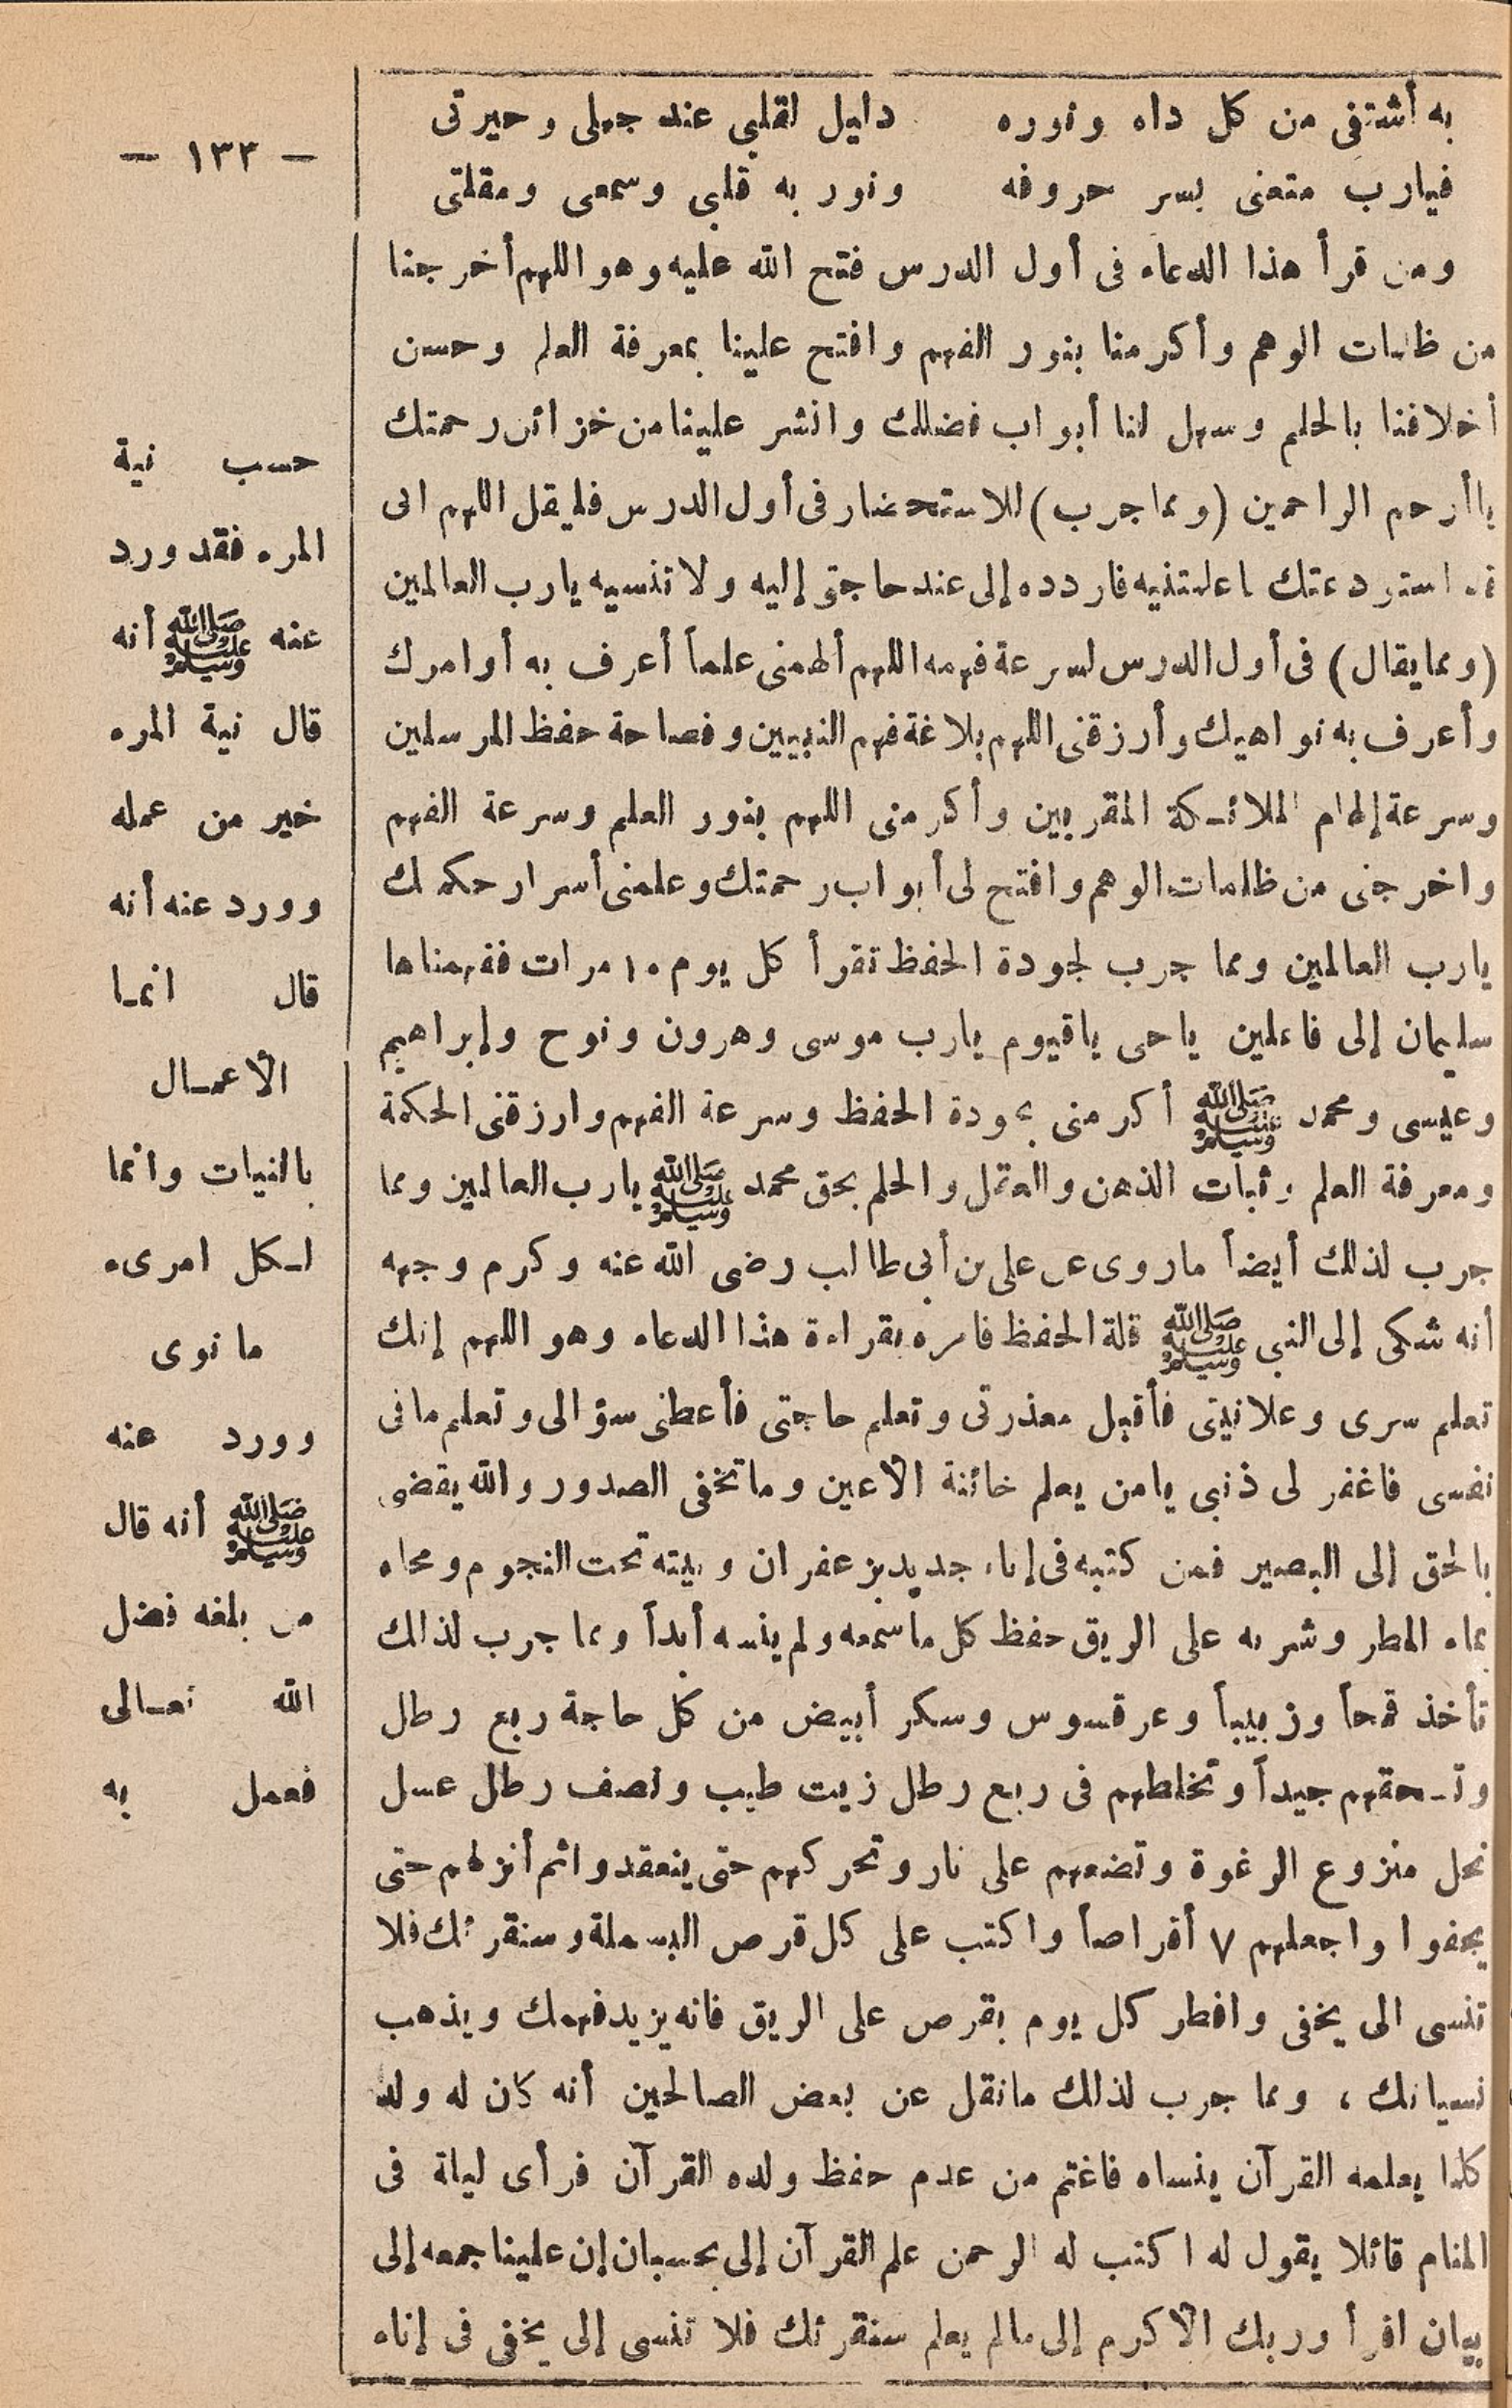 به أشتفى من كل داه ونوره دليل لقلبى عند جهلى وحيرتى
فيارب متعنى بسر حروفه ونور به قلبى وسمعى ومقلتى
ومن قرأ هذا الدعاء فى أول الدرس فتح الله عليه وهو اللهم أخرجنا
من ظلمات الوهم وأكرمنا بنور الفهم وافتح علينا بمعرفة العلم وحسن
أخلاقنا بالحلم وسهل لنا أبواب فضلك وانشر علينا من خزائن رحمتك
ياأرحم الراحمين (ومما جرب) للاستحضار فى أول الدرس فليقل اللهم انى
قد استودعتك ماعلمتنيه فاردده إلى عند حاجتى إليه ولا تنسيه يارب العالمين
(ومما يقال) فى أول الدرس لسرعة فهمه اللهم ألهمنى علماً أعرف به أوامرك
وأعرف به نواهيك وأرزقنى اللهم بلاغة فهم النبيين وفصاحة حفظ المرسلين
وسرعة إلهام الملائكة المقربين وأكرمنى اللهم بنور العلم وسرعة الفهم
واخرجنى من ظلمات الوهم وافتح لى أبواب رحمتك وعلمنى أسرار حكمتك
يارب العالمين ومما جرب لجودة الحفظ تقرأ كل يوم ١٠ مرات ففهمناها
سليمان إلى فاعلين ياحى ياقيوم يارب موسى وهرون ونوح وإبراهيم
وعيسى ومحمد ﷺ أكرمنى بجودة الحفظ وسرعة الفهم وارزقنى الحكمة
ومعرفة العلم وثبات الذهن والعقل والحلم بحق محمد ﷺ يارب العالمين ومما
جرب لذلك أيضاً ماروى عن على بن أبى طالب رضى الله عنه وكرم وجهه
أنه شكى إلى النبى ﷺ قلة الحفظ فامره بقراءة هذا الدعاء وهو اللهم إنك
تعلم سرى وعلانيتى فأقبل معذرتى وتعلم حاجتى فأعطنى سؤالى وتعلم مافى
نفسى فاغفر لى ذنبى يامن يعلم خائنة الأعين وماتخفى الصدور والله يقضى
بالحق إلى البصير فمن كتبه فى إناء جديد بزعفران وبيته تحت النجوم ومحاه
بماء المطر وشربه على الريق حفظ كل ماسمعه ولم ينسه أبداً ومما جرب لذلك
تأخذ قمحاً وزبيباً وعرقسوس وسكر أبيض من كل حاجة ربع رطل
وتسحقهم جيداً وتخلطهم فى ربع رطل زيت طيب ونصف رطل عسل
نحل منزوع الرغوة وتضعهم على نار وتحركهم حتى ينعقدوا ثم أنزلهم حتى
يجفوا واجعلهم ٧ أقراصاً واكتب على كل قرص البسملة وسنقرئك فلا
تنسى الى يخفى وافطر كل يوم بقرص على الريق فانه يزيد فهمك ويذهب
نسيانك ، ومما جرب لذلك مانقل عن بعض الصالحين أنه كان له ولد
كلما يعلمه القرآن ينساه فاغتم من عدم حفظ ولده القرآن فرأى ليلة فى
المنام قائلا يقول له اكتب له الرحمن علم القرآن إلى بحسبان إن علينا جمعه إلى
بيان اقرأ وربك الأكرم إلى مالم يعلم سنقرئك فلا تنسى إلى يخفى فى إناء
— ١٣٣ —
حسب نية
المرء فقد ورد
عنه ﷺ أنه
قال نية المرء
خير من عمله
وورد عنه أنه
قال انما
الأعمال
بالنيات وانما
لكل امرىء
مانوى
وورد عنه
ﷺ أنه قال
من بلغه فضل
الله تعالى
فعمل به